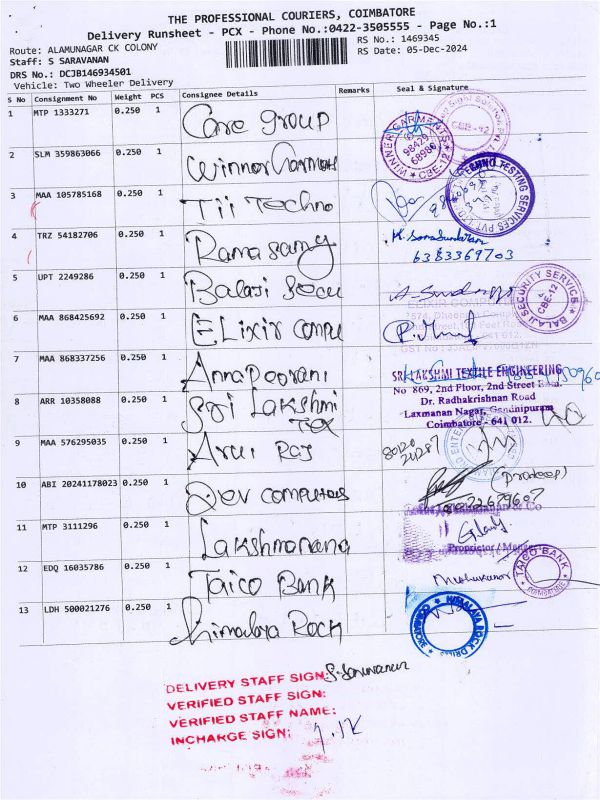 THE PROFESSIONAL COURIERS, COIMBATORE
Delivery Runsheet - PCX - Phone No.:0422-3505555 - Page No.:1
Route: ALAMUNAGAR CK COLONY
RS No.: 1469345
Staff: S SARAVANAN
RS Date: 05-Dec-2024
DRS No.: DCJB146934501
Vehicle: Two Wheeler Delivery
S No Consignment No Weight PCS Consignee Details Remarks Seal & Signature
1 MTP 1333271 0.250 1 Care group
2 SLM 359863066 0.250 1 Winner Garments
WINNER GARMENTS CBE-12
98429 68986
3 MAA 105785168 0.250 1 Tii Techno
TECHNO TESTING SERVICES PVT
4 TRZ 54182706 0.250 1 Ramasamy
6383369703
5 UPT 2249286 0.250 1 Balaji Secu
BALAJI SECURITY SERVICE CBE-12
6 MAA 868425692 0.250 1 Elixir compu
7 MAA 868337256 0.250 1 Annapoorani
SRI LAKSHMI TEXTILE ENGINEERING
No 869, 2nd Floor, 2nd Street Extn.
Dr. Radhakrishnan Road
Laxmanan Nagar, Gandhipuram
Coimbatore - 641 012.
8 ARR 10358088 0.250 1 Sri Lakshmi Tex
9 MAA 576295035 0.250 1 Arul Raj
10 ABI 20241178023 0.250 1 Dev computers
(Pradeep)
11 MTP 3111296 0.250 1 Lakshmanana
& Co
Proprietor / Manager
12 EDQ 16035786 0.250 1 Taico Bank
TAICO BANK
Muthukumar
13 LDH 500021276 0.250 1 Himalaya Rock
HIMALAYA ROCK DRILLS COIMBATORE
DELIVERY STAFF SIGN: S. Saravanan
VERIFIED STAFF SIGN:
VERIFIED STAFF NAME:
INCHARGE SIGN: